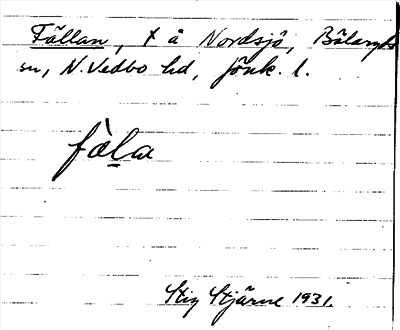 Fällan, t å Nordsjö, Bälaryds
sn, N. Vedbo hd, Jönk. l.
fàl̠a
Stig Stjärne 1931.